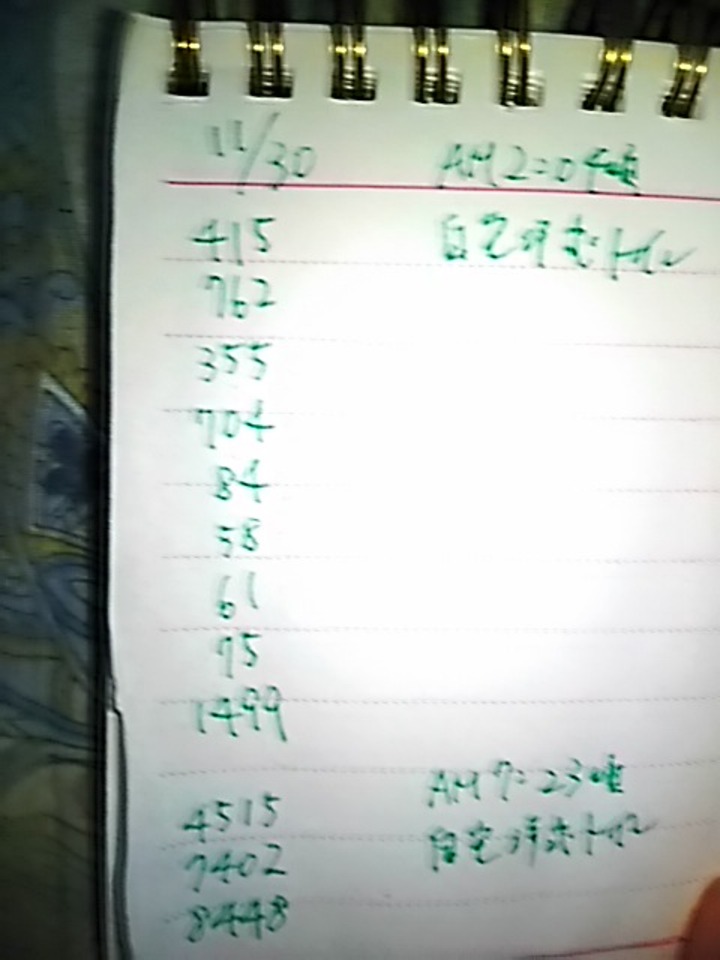 11/30 AM 2:04頃
415 自宅
762
355
704
84
58
61
75
1499
AM 7:23頃
4515 自宅
7402
8448